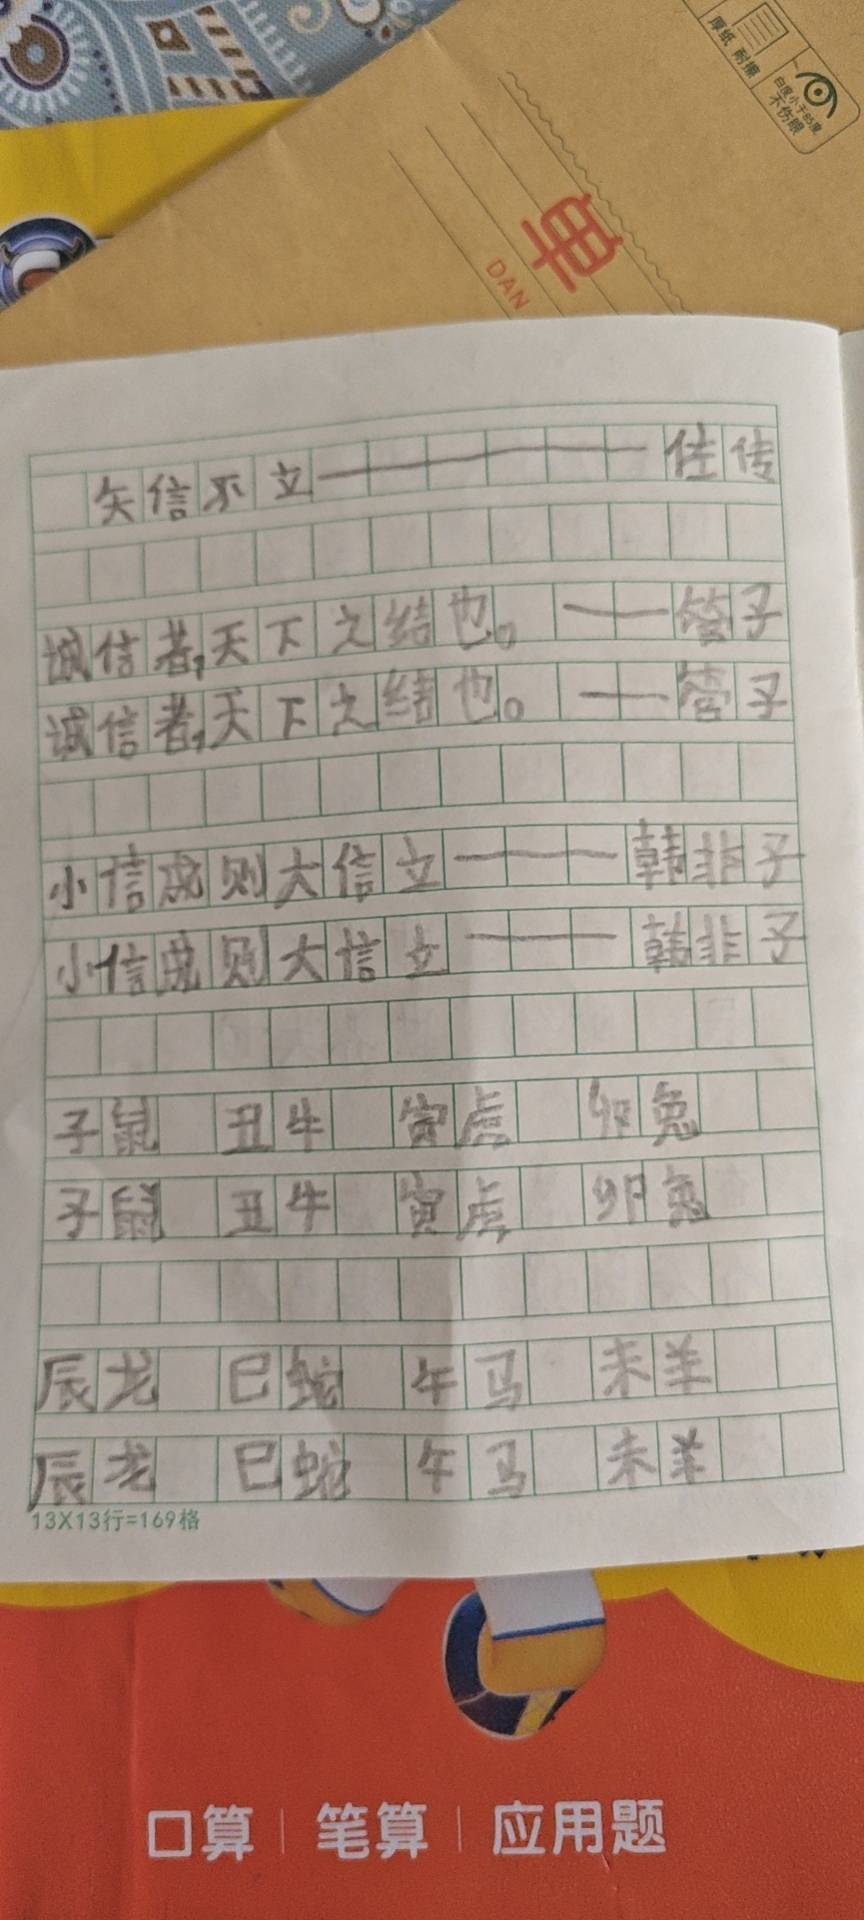 厚纸 耐擦
白度小于85度
不伤眼
单
DAN
失信不立——————佐传
诚信者,天下之结也。——管子
诚信者,天下之结也。——管子
小信成则大信立———韩非子
小信成则大信立———韩非子
子鼠 丑牛 寅虎 卯兔
子鼠 丑牛 寅虎 卯兔
辰龙 巳蛇 午马 未羊
辰龙 巳蛇 午马 未羊
13X13行=169格
口算 | 笔算 | 应用题